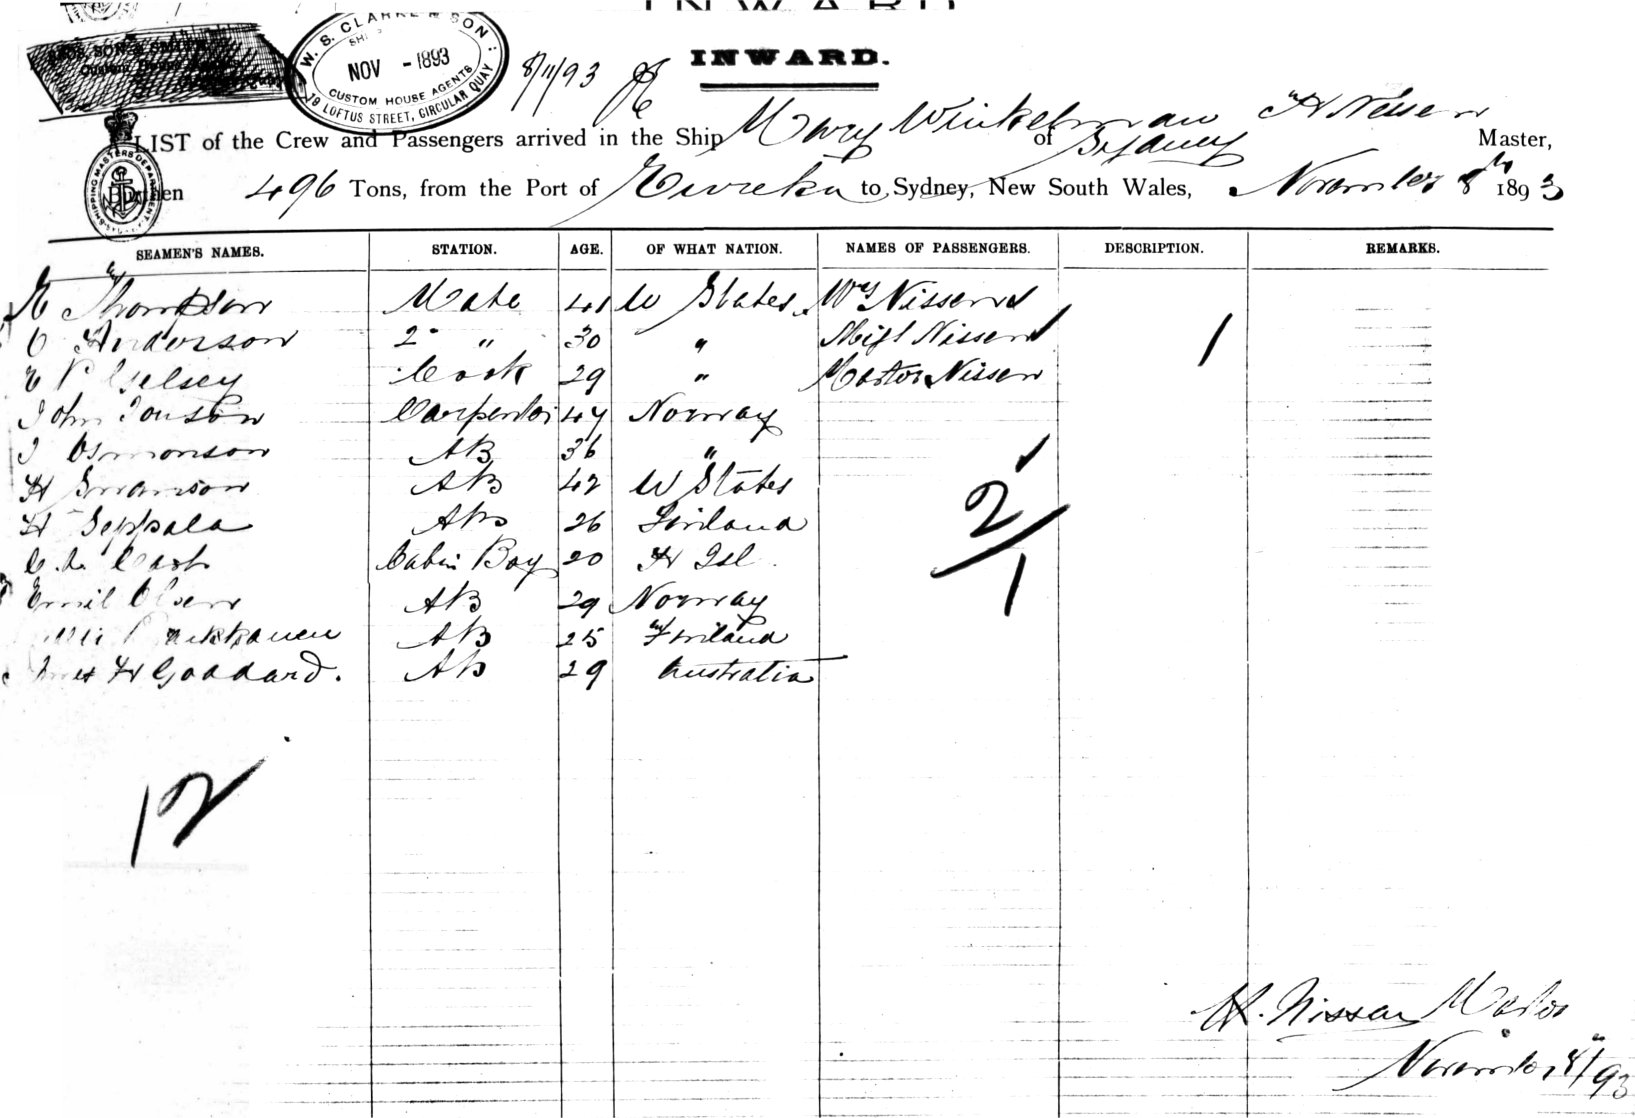 INWARD.
W. S. CLARKE & SON
NOV - 1893
CUSTOM HOUSE AGENTS
19 LOFTUS STREET, CIRCULAR QUAY
8/11/93
INWARD.
LIST of the Crew and Passengers arrived in the Ship Mary Winkelman of Sydney H Nissen Master,
SHIPPING MASTERS DEPARTMENT
Burthen 496 Tons, from the Port of Eureka to Sydney, New South Wales, November 8th 1893
SEAMEN'S NAMES. STATION. AGE. OF WHAT NATION. NAMES OF PASSENGERS. DESCRIPTION. REMARKS.
Thompson Mate 41 U States Mrs Nissen
C Anderson 2 " 30 " Miss Nissen 1
Gelsey Cook 29 " Master Nissen
John Carpenter 47 Norway
Osmonson AB 36 "
H Swanson AB 42 U States
H Seppala AB 26 Finland
Cabin Boy 20 H Isl
Emil Olsen AB 29 Norway
AB 25 Finland
H Goddard. AB 29 Australia
2/1
12
H. Nissen Master
November 8/93